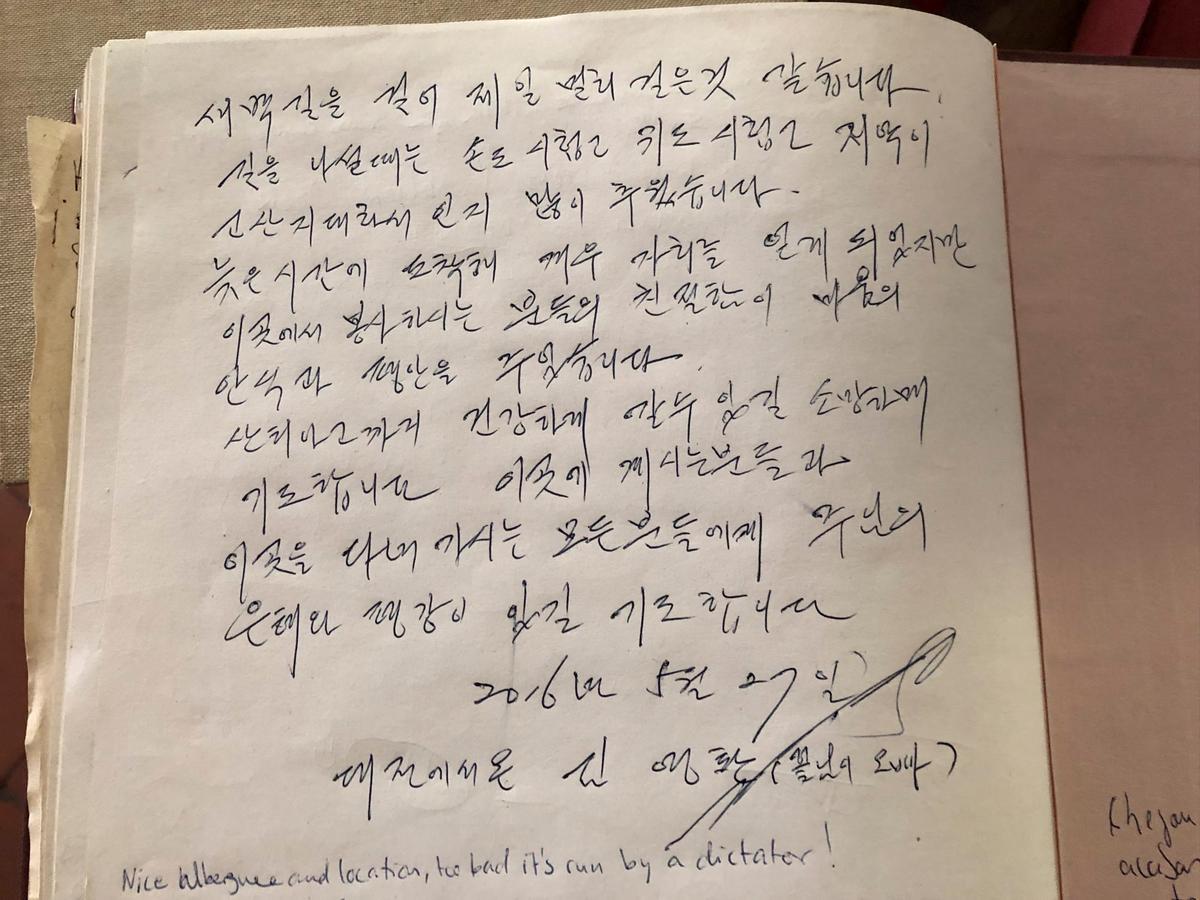 새벽길을 걸어 제일 멀리 걸은것 같습니다.
길을 나설때는 손도 시렵고 귀도 시렵고 지역이
고산지대라서 인지 많이 추웠습니다.
늦은시간에 도착해 겨우 자리를 얻게 되었지만
이곳에서 봉사하시는 분들의 친절함이 마음의
안식과 평안을 주었습니다.
산티아고까지 건강하게 갈수 있길 소망하며
기도합니다 이곳에 계시는분들과
이곳을 다녀 가시는 모든분들에게 주님의
은혜와 평강이 있길 기도합니다
2016년 5월 27일
대전에서온 영환 오빠)
Nice albergue and location, too bad it's run by a dictator!